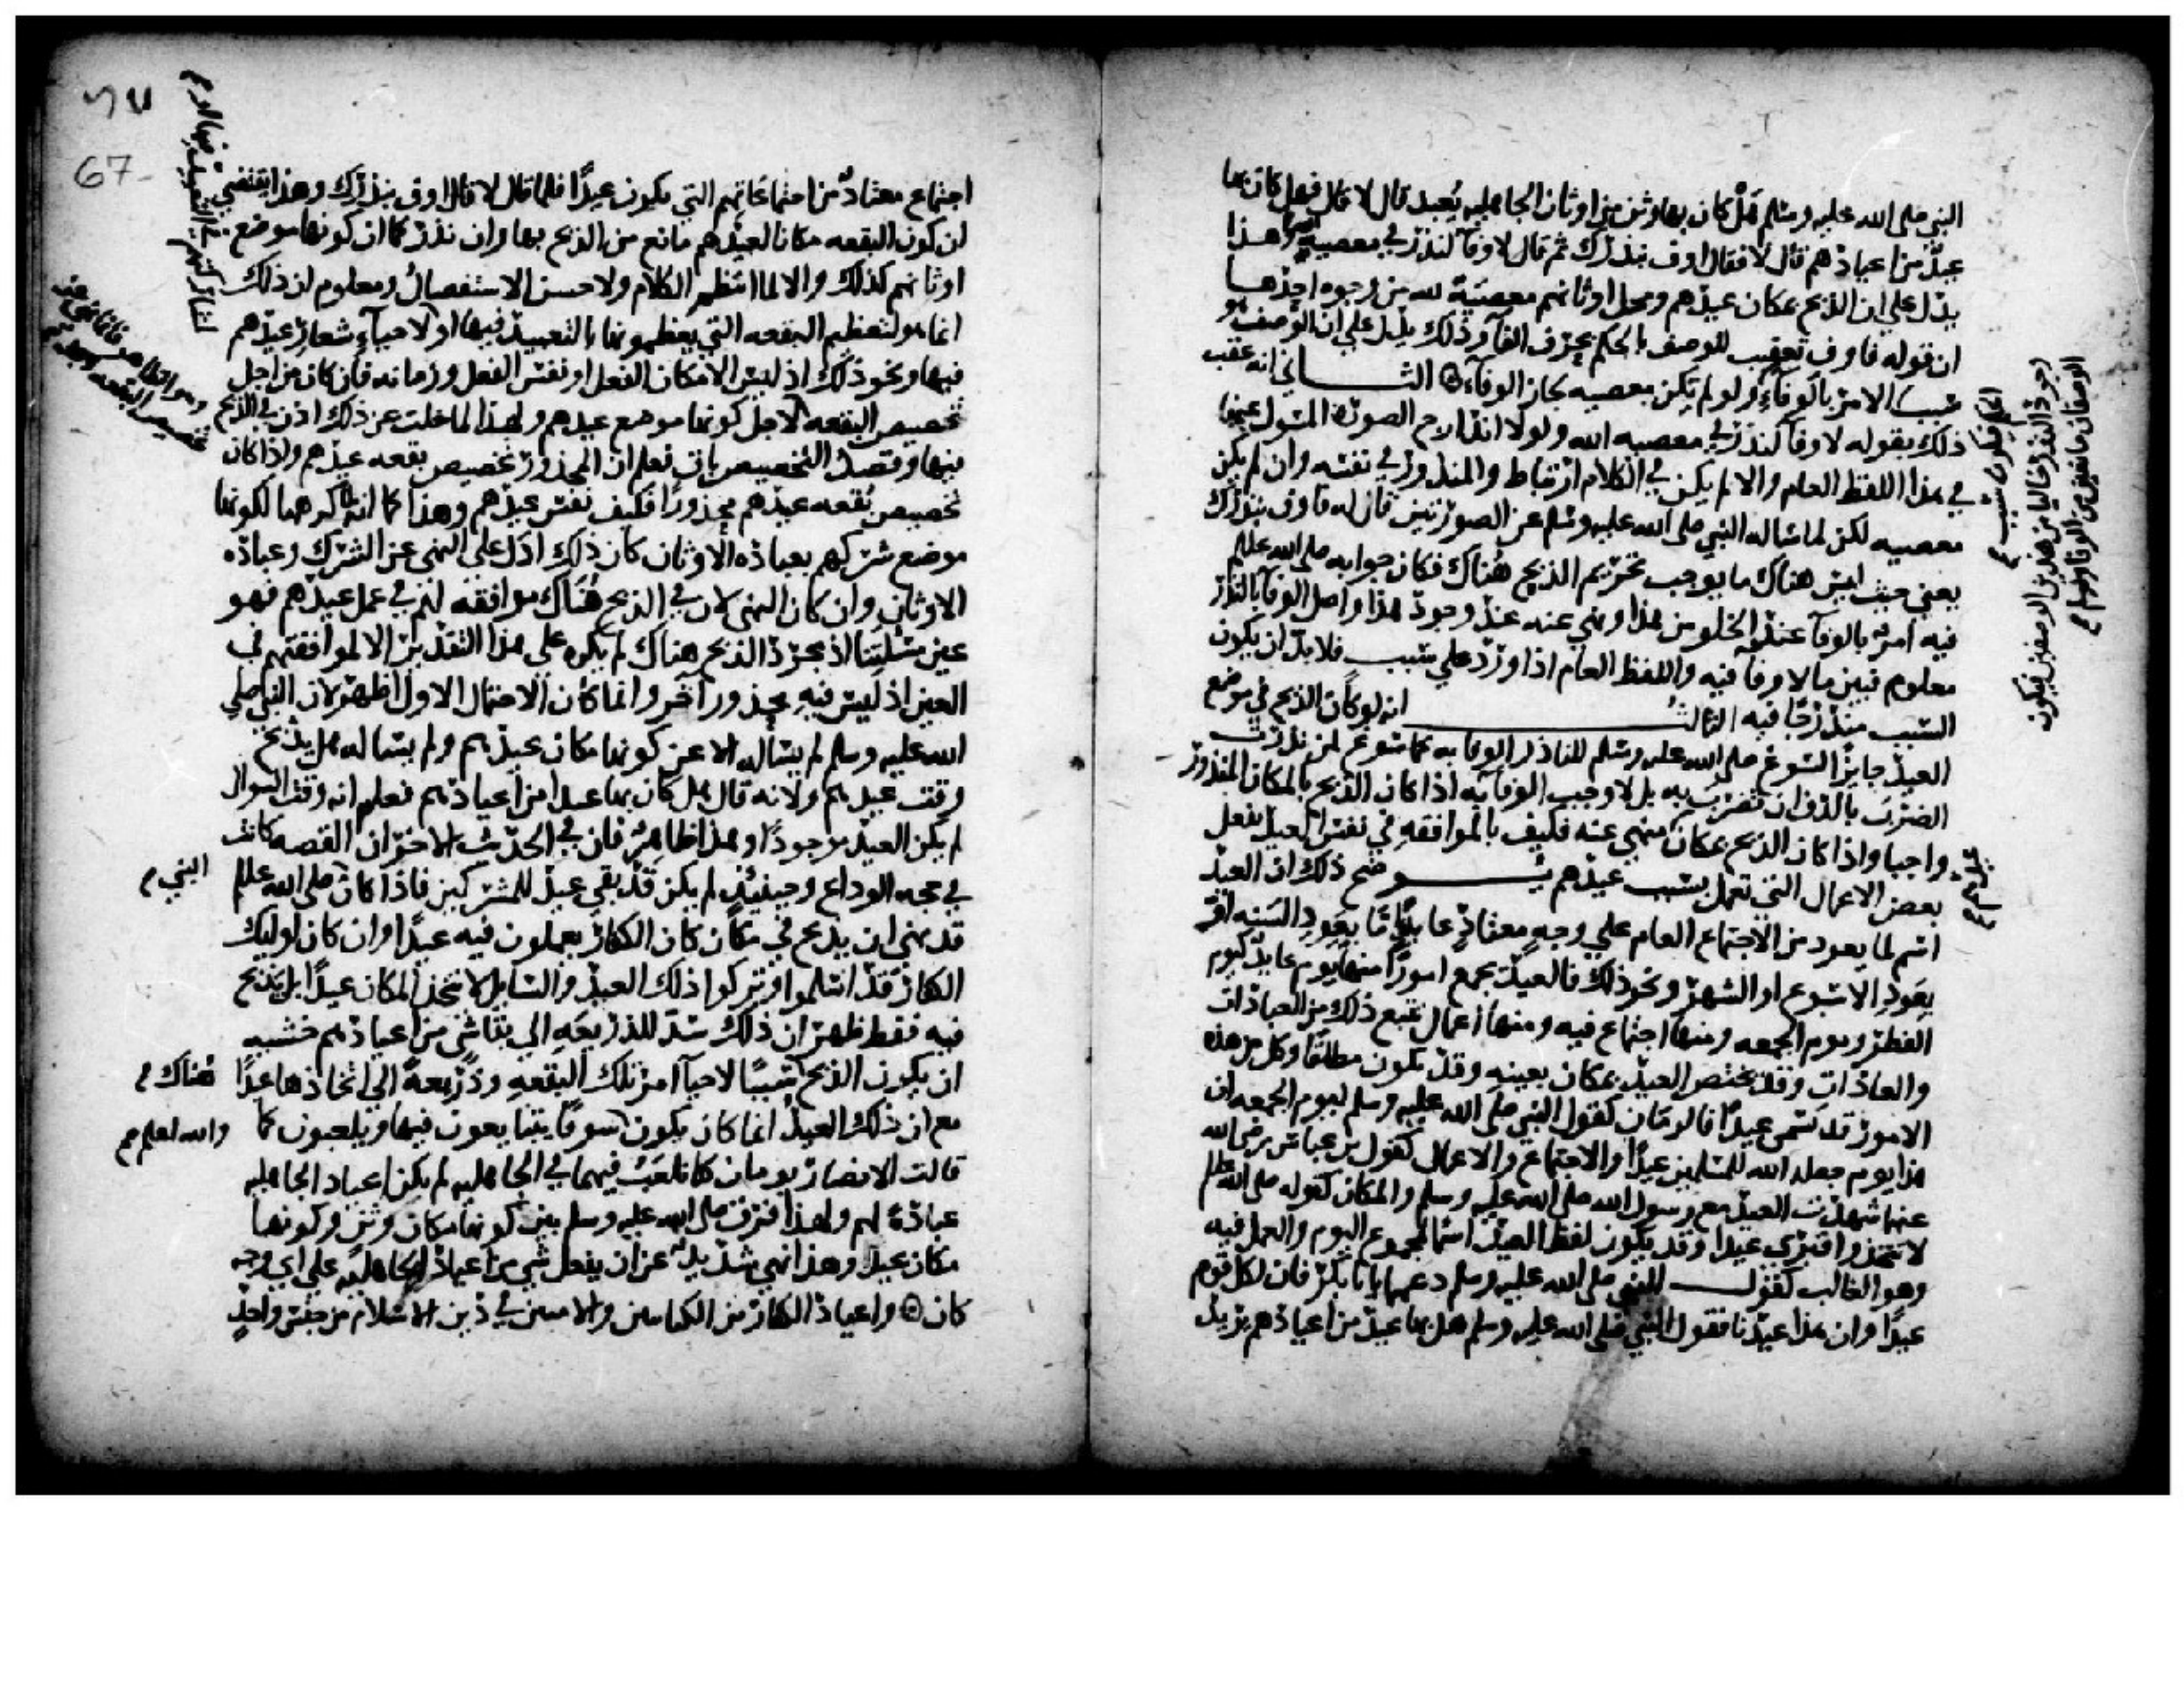 النبي صلى الله عليه وسلم هل كان بها وثن من اوثان الجاهليه يعبد قال لا قال فهل كان بها
عيد من اعيادهم قال لا فقال اوف بنذرك ثم قال لا وفآ لنذر في معصية الله وهذا
يدل على ان الذبح بمكان عيدهم ومحل اوثانهم معصية لله من وجوه احدها
ان قوله فاوف تعقيب للوصف بالحكم بحرف الفآ وذلك يدل علي ان الوصف هو
سبب الامر بالوفآء ولو لم يكن معصيه لجاز الوفآء الثـــاني انه عقب
ذلك بقوله لا وفآ لنذر في معصيه الله ولولا اندراج الصورة المسول عنها
في هذا اللفظ العام والا لم يكن في الكلام ارتباط والمنذور في نفسه وان لم يكن
معصيه لكن لما ساله النبي صلى الله عليه وسلم عن الصورتين قال له فاوف بنذرك
يعني حيث ليس هناك ما يوجب تحريم الذبح هناك فكان جوابه صلى الله عليه وسلم
فيه امره بالوفآ عند الخلو من هذا ونهي عنه عند وجود هذا واصل الوفآ بالنذر
معلوم فبين ما لا وفا فيه واللفظ العام اذا ورد علي سبب فلا بد ان يكون
السبب مندرجا فيه الثالث انه لو كان الذبح في موضع
العيد جايزا لسوغ صلى الله عليه وسلم للناذر الوفا به كما سوغ لمن نذرت
الضرب بالدف ان تضرب به بل لاوجب الوفآ به اذا كان الذبح بالمكان المنذور
واجبا واذا كان الذبح بمكان عيدهم منهي عنه فكيف بالموافقه في نفس العيد بفعل
بعض الاعمال التي تعمل بسبب عيدهم يـــوضح ذلك ان العيد
اسم لما يعود من الاجتماع العام علي وجه معتاد عايد اما بعود السنه او
بعود الاسبوع او الشهر ونحو ذلك فالعيد يجمع امورا منها يوم عايد كيوم
الفطر ويوم الجمعه ومنها اجتماع فيه ومنها اعمال تتبع ذلك من العبادات
والعادات وقد يختص العيد بمكان بعينه وقد يكون مطلقا وكل من هذه
الامور قد تسمى عيدا فالزمان كقول النبي صلى الله عليه وسلم ليوم الجمعه ان
هذا يوم جعله الله للمسلمين عيدا والاجتماع والاعمال كقول بن عباس رضي الله
عنهما شهدت العيد مع رسول الله صلى الله عليه وسلم والمكان كقوله صلى الله عليه وسلم
لا تتخذوا قبري عيدا وقد يكون لفظ العيد اسما لمجموع اليوم والعمل فيه
وهو الغالب كقول النبي صلى الله عليه وسلم دعهما يا ابا بكر فان لكل قوم
عيدا وان هذا عيدنا فقول النبي صلى الله عليه وسلم هل بها عيد من اعيادهم يريد
سبب الحكم
وجود النذر خاليا من هذين الوصفين فيكون
الوصفان مانعين من الوفا
67
اجتماع معتاد من اجتماعاتهم التي يكون عيدا فلما قال لا قال اوف بنذرك وهذا يقتضي
ان كون البقعه مكانا لعيدهم مانع من الذبح بها وان نذر كما ان كونها موضع
اوثانهم كذلك والا لما انتظم الكلام ولا حسن الاستفصال ومعلوم ان ذلك
انما هو لتعظيم البقعه التي يعظمونها بالتعييد فيها او لاحيآء شعار عيدهم
فيها ونحو ذلك اذ ليس الا مكان الفعل او نفس الفعل وزمانه فان كان من اجل
تخصيص البقعه لاجل كونها موضع عيدهم ولهذا لما خلت عن ذلك اذن في الذبح
فيها وقصد التخصيص باق فعلم ان المحذور تخصيص بقعه عيدهم واذا كان
تخصيص بقعه عيدهم محذورا فكيف نفس عيدهم وهذا كما انه كرهها لكونها
موضع شركهم بعباده الاوثان كان ذلك ادل على النهي عن الشرك وعباده
الاوثان وان كان النهي لان في الذبح هناك موافقه لهم في عمل عيدهم فهو
عين مسئلتنا اذ مجرد الذبح هناك لم يكره على هذا التقدير الا لموافقتهم في
العيد اذ ليس فيه محذور آخر وانما كان الاحتمال الاول اظهر لان النبي صلى
الله عليه وسلم لم يساله الا عن كونها مكان عيدهم ولم يساله هل يذبح
وقت عيدهم ولانه قال هل كان بها عيد من اعيادهم فعلم انه وقت السوال
لم يكن العيد موجودا وهذا ظاهر فان في الحديث الاخر ان القصه كانت
في حجه الوداع وحينئذ لم يكن قد بقي عيد للمشركين فاذا كان صلى الله عليه وسلم
النبي
قد نهى ان يذبح في مكان كان الكفار يعملون فيه عيدا وان كان اوليك
الكفار قد اسلموا وتركوا ذلك العيد والسايل لا يتخذ المكان عيدا بل يذبح
فيه فقط ظهر ان ذلك سد للذريعه الي بقا شي من اعيادهم خشيه
ان يكون الذبح سببا لاحيآ امر تلك البقعه وذريعة الي اتخاذها عيدا
هناك
مع ان ذلك العيد انما كان يكون سوقا يتبايعون فيها ويلعبون كما
والله اعلم
قالت الانصار يومان كنا نلعب فيهما في الجاهليه لم يكن اعياد الجاهليه
عبادة لهم ولهذا فرق صلى الله عليه وسلم بين كونها مكان وثن وكونها
مكان عيد وهذا نهي شديد عن ان يفعل شي من اعياد الجاهليه على اي وجه
كان واعياد الكفار من الكتابيين والاميين في دين الاسلام من جنس واحد